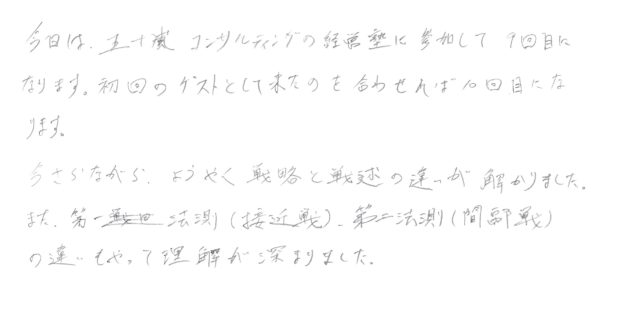 今日は、五十嵐コンサルティングの経営塾に参加して9回目に
なります。初回のゲストとして来たのを合わせれば10回目にな
ります。
今さらながら、ようやく戦略と戦述の違いが解かりました。
また、第一法測(接近戦)、第二法測(間部戦)
の違いもやって理解が深まりました。